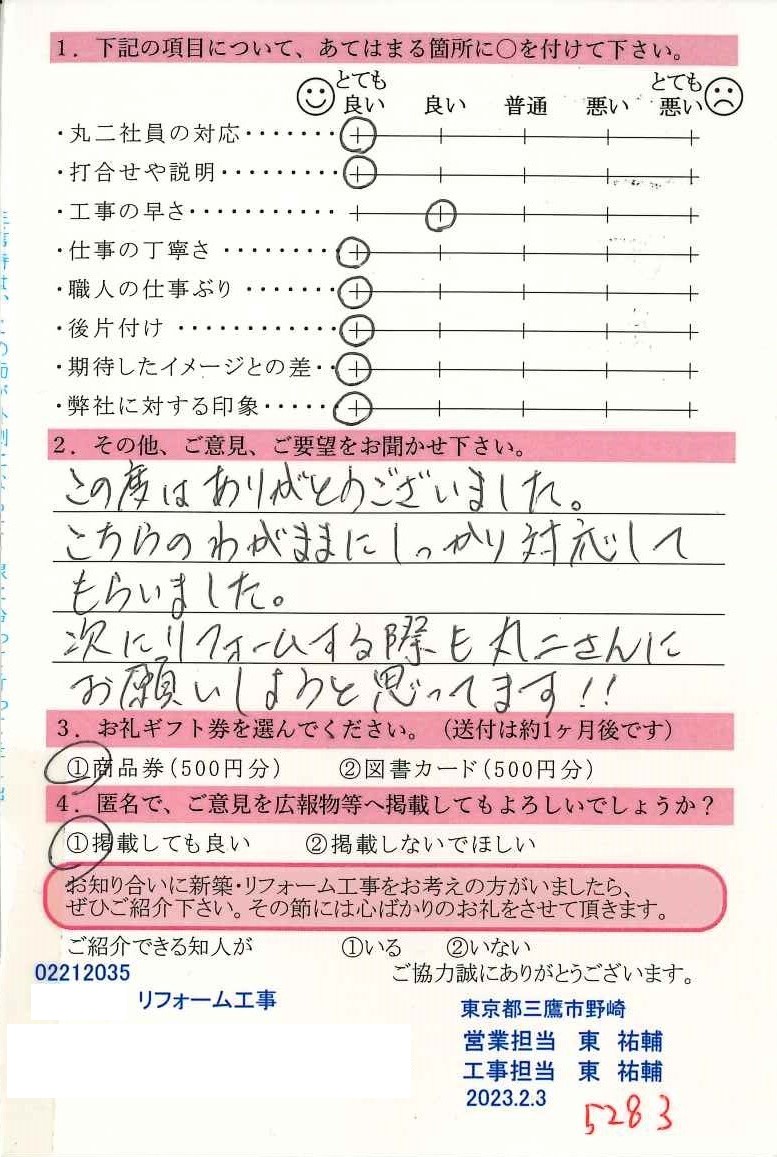 1．下記の項目について、あてはまる箇所に○を付けて下さい。
とても良い 良い 普通 悪い とても悪い
・丸二社員の対応・・・・・・・
・打合せや説明・・・・・・・・・
・工事の早さ・・・・・・・・・・・
・仕事の丁寧さ ・・・・・・・・
・職人の仕事ぶり ・・・・・・・
・後片付け ・・・・・・・・・・・・
・期待したイメージとの差・・
・弊社に対する印象・・・・・
2．その他、ご意見、ご要望をお聞かせ下さい。
この度はありがとうございました。
こちらのわがままにしっかり対応して
もらいました。
次にリフォームする際も丸二さんに
お願いしようと思ってます!!
3．お礼ギフト券を選んでください。（送付は約1ヶ月後です）
①商品券(500円分) ②図書カード(500円分)
4．匿名で、ご意見を広報物等へ掲載してもよろしいでしょうか？
①掲載しても良い ②掲載しないでほしい
お知り合いに新築・リフォーム工事をお考えの方がいましたら、
ぜひご紹介下さい。その節には心ばかりのお礼をさせて頂きます。
ご紹介できる知人が ①いる ②いない
ご協力誠にありがとうございます。
02212035
リフォーム工事
東京都三鷹市野崎
営業担当 東 祐輔
工事担当 東 祐輔
2023.2.3
5283